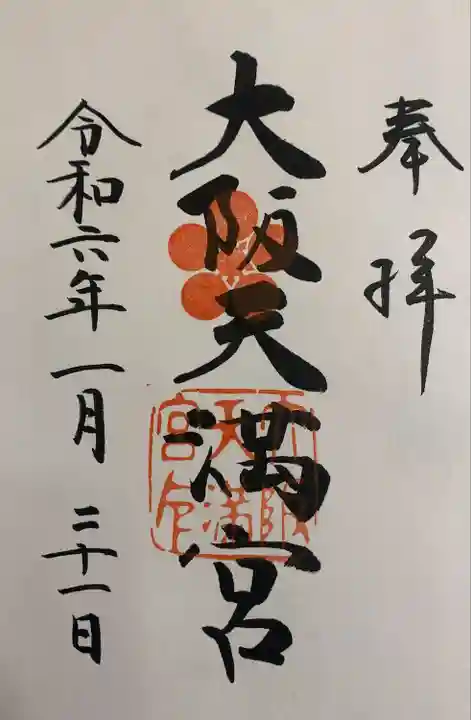 奉拝
大阪天満宮
大阪天満宮印
令和六年一月二十一日